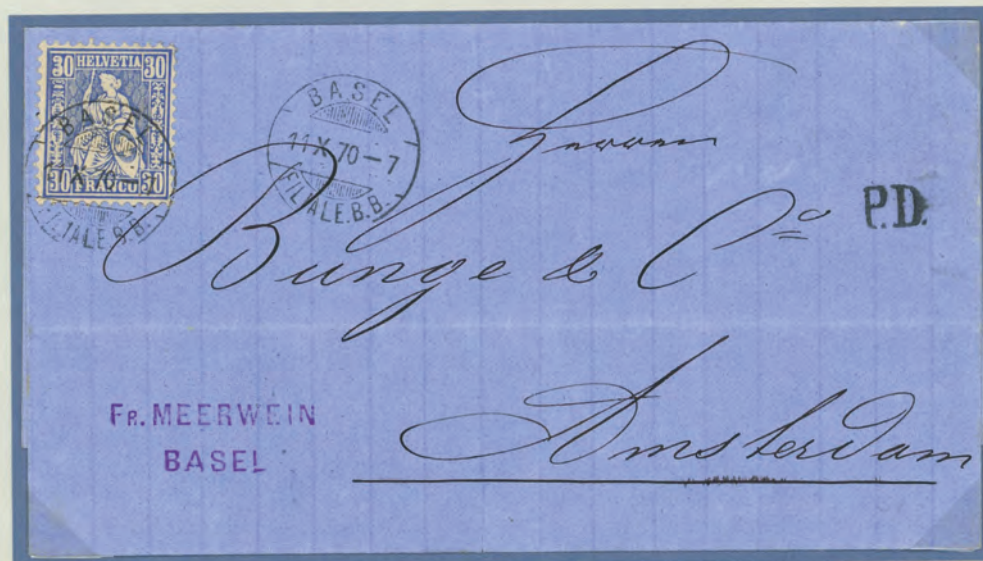 30 HELVETIA 30
30 FRANCO 30
BASEL
X 70 – 7
FILIALE B.B.
BASEL
11 X 70 – 7
FILIALE.B.B.
Herren
Bunge & Co
P.D.
Amsterdam
FR. MEERWEIN
BASEL